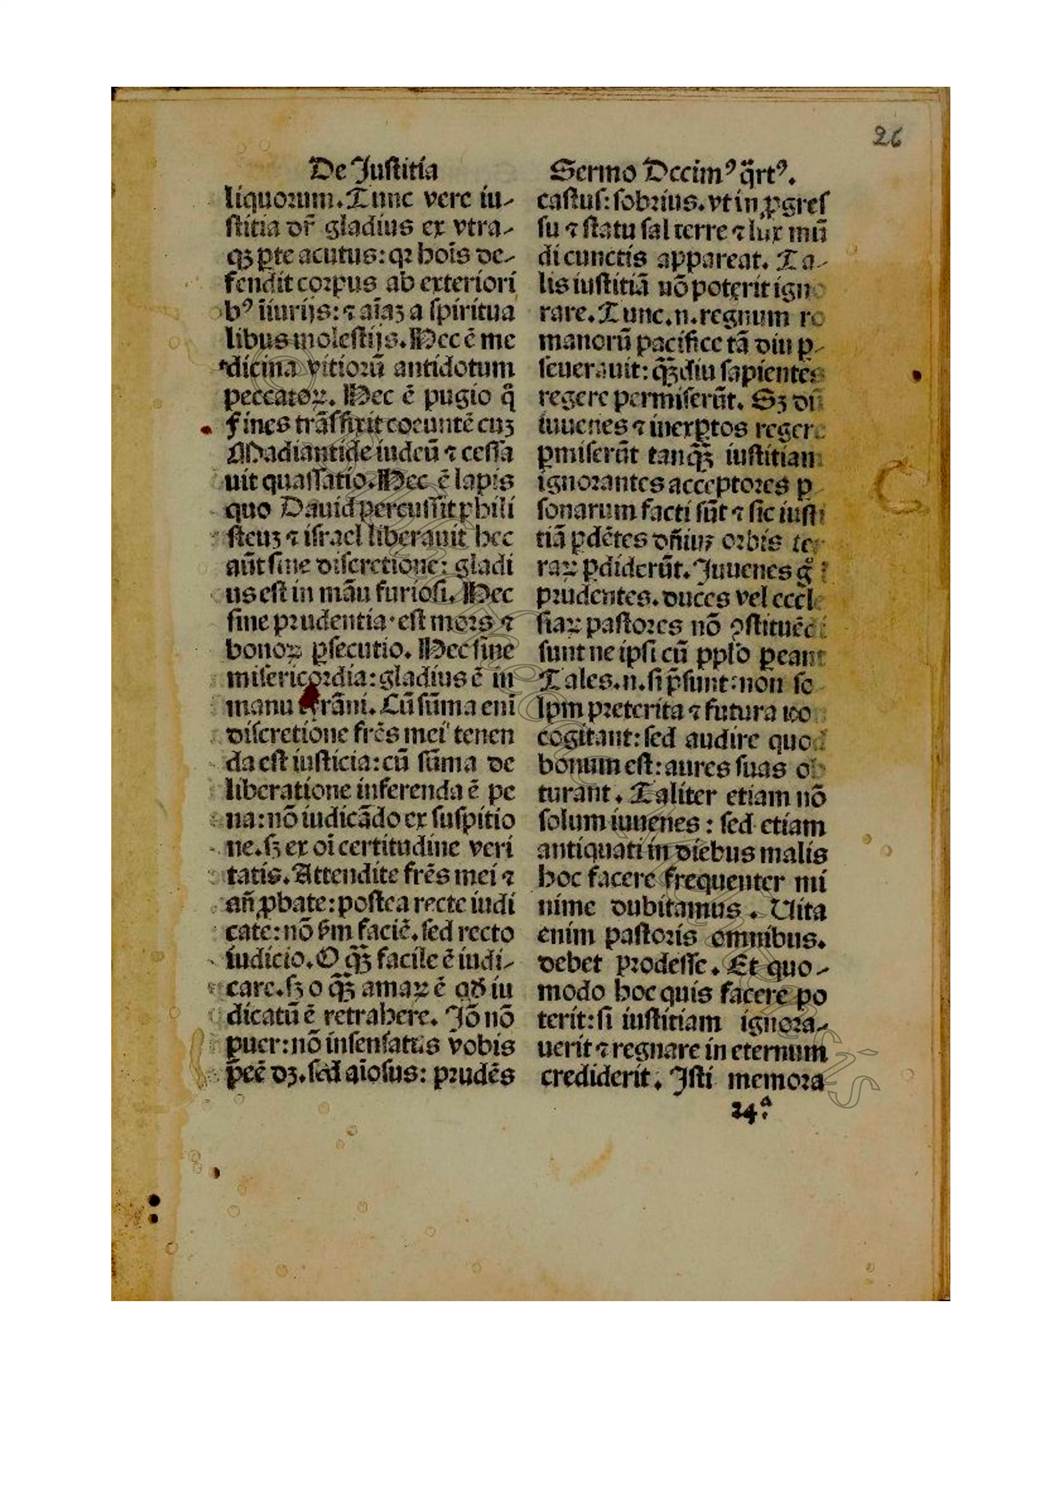 26
De Justitia
liquorum. Tunc vere iu-
stitia dr̄ gladius ex vtra-
qꝫ ꝑte acutus: qꝛ hoı̄s de-
fendit corpus ab exteriori
bꝰ iı̄urijs: ⁊ aı̄aꝫ a spiritua
libus molestijs. Hec ē me
dicina vitiorū antidotum
peccatoꝝ. Hec ē pugio q̄
fines trāsfixit coeuntē cuꝫ
Madiantide iudeū ⁊ cessa
uit quassatio. Hec ē lapis
quo Dauid percussit phili
steuꝫ ⁊ israel liberauit hec
aūt sine discretione: gladi
us est in māu furiosi. Hec
sine prudentia est mors ⁊
bonoꝝ ꝑsecutio. Hec sine
misericordia: gladius ē in
manu tyrāni. Cū sūma enı̄
discretione frēs mei tenen
da est iusticia: cū sūma de
liberatione inferenda ē pe
na: nō iudicādo ex suspitio
ne. sꝫ ex oı̄ certitudine veri
tatis. Attendite frēs mei ⁊
an̄ ꝓbate: postea recte iudi
cate: nō ẜm faciē. sed recto
iudicio. O qꝫ̄ facile ē iudi-
care. sꝫ o qꝫ̄ amaꝝ ē qđ iu
dicatū ē retrahere. Jō nō
puer: nō insensatus vobis
p̄eē dꝫ. sed aı̄osus: prudēs
Sermo Decimꝰ q̄rtꝰ.
castus: sobrius. vt in ꝓgres
su ⁊ statu sal terre ⁊ lux mū
di cunctis appareat. Ta-
lis iustitiā nō poterit igno
rare. Tunc .n. regnum ro
manorū pacifice tā diu ꝑ-
seuerauit: qꝫ̄diu sapientes
regere permiserūt. Sꝫ dū
iuuenes ⁊ inexꝑtos regere
ꝑmiserūt tanqꝫ̄ iustitiam
ignorantes acceptores ꝑ
sonarum facti sūt ⁊ sic iusti
tiā ꝑdētes dn̄iuꝫ orbis ter
raꝝ ꝑdiderūt. Juuenes gͦ ⁊
prudentes. duces vel eccle
siaꝝ pastores nō ꝯstituēdi
sunt ne ipsi cū pplo ꝑeant
Tales .n. si p̄sunt: non so
lum preterita ⁊ futura nō
cogitant: sed audire quod
bonum est: aures suas ob
turant. Taliter etiam nō
solum iuuenes: sed etiam
antiquati in diebus malis
hoc facere frequenter mi
nime dubitamus. Uita
enim pastoris omnibus.
debet prodesse. Et quo-
modo hoc quis facere po
terit: si iustitiam ignora-
uerit ⁊ regnare in eternum
crediderit. Isti memora
24.ª